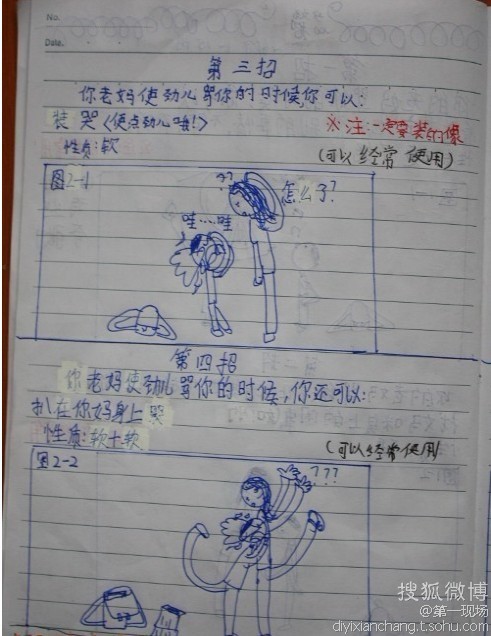 No.
Date.
第三招
你老妈使劲儿骂你的时候,你可以:
装哭〈使点劲儿哦!〉
※注:一定要装的像
性质:软
(可以经常使用)
图2-1
??
怎么了?
哇…哇
第四招
你老妈使劲儿骂你的时候,你还可以:
扒在你妈身上哭
性质:软+软
(可以经常使用
图2-2
???
搜狐微博
@第一现场
diyixianchang.t.sohu.com